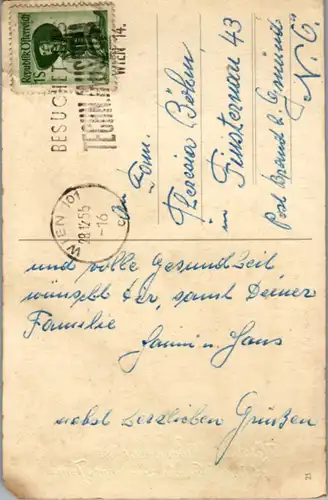 Republik Österreich
1S
BESUCHET
TECHN.
WIEN 14.
WIEN 101
28.12.55
-16
An Fam.
Theresia Böhm
in Finsternau 43
Post Brand b. Gmünd
N.Ö.
und volle Gesundheit
wünscht Dir, samt Deiner
Familie
Hans
nebst herzlichen Grüßen